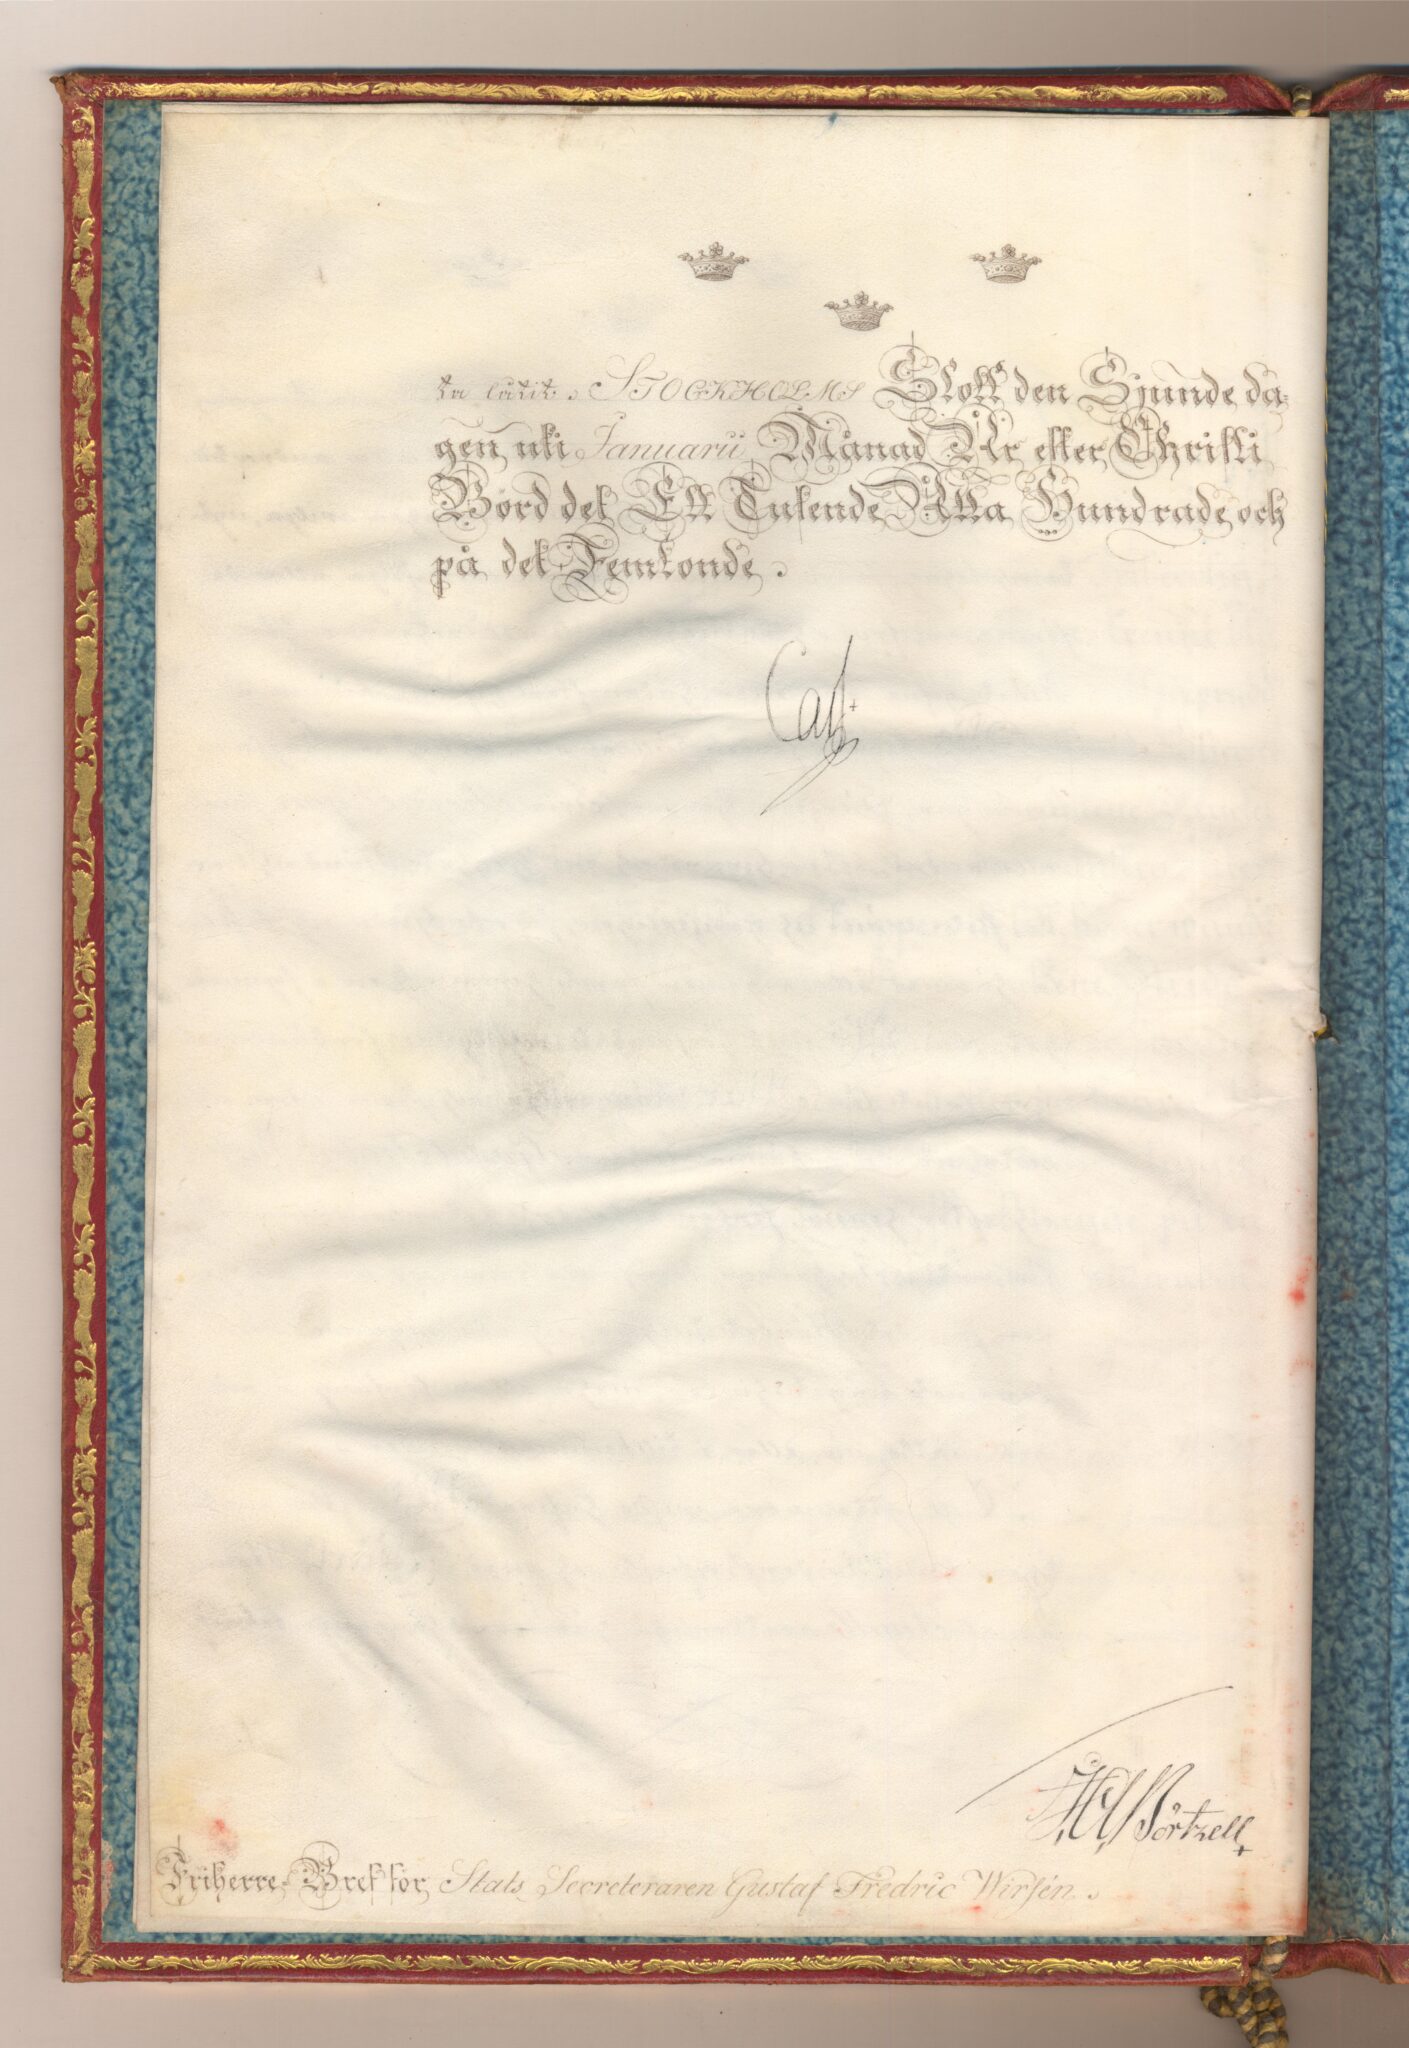 ta låtit. STOCKHOLMS Slott den Sjunde da-
gen uti Januarii Månad År efter Christi
Börd det Ett Tusende Åtta Hundrade och
på det Femtonde.
Carl
Friherre-Bref för Stats Secreteraren Gustaf Fredric Wirsén.